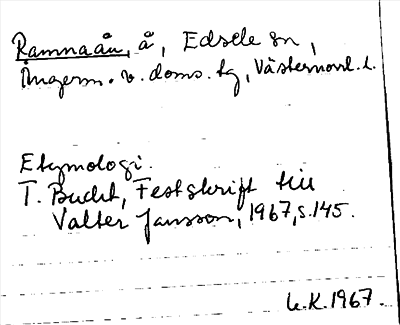 Ramnaån, å, Edsele sn,
Ångerm. v. doms. tg, Västernorrl. l.
Etymologi.
T. Bucht, Festskrift till
Valter Jansson, 1967, s. 145.
L.K. 1967.